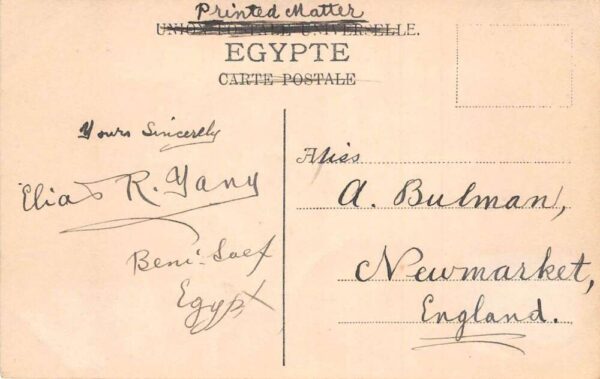 Printed Matter
UNION POSTALE UNIVERSELLE.
EGYPTE
CARTE POSTALE
Yours Sincerely
Elias R. Yany
Beni-Soef
Egypt
Miss
A. Bulman,
Newmarket,
England.